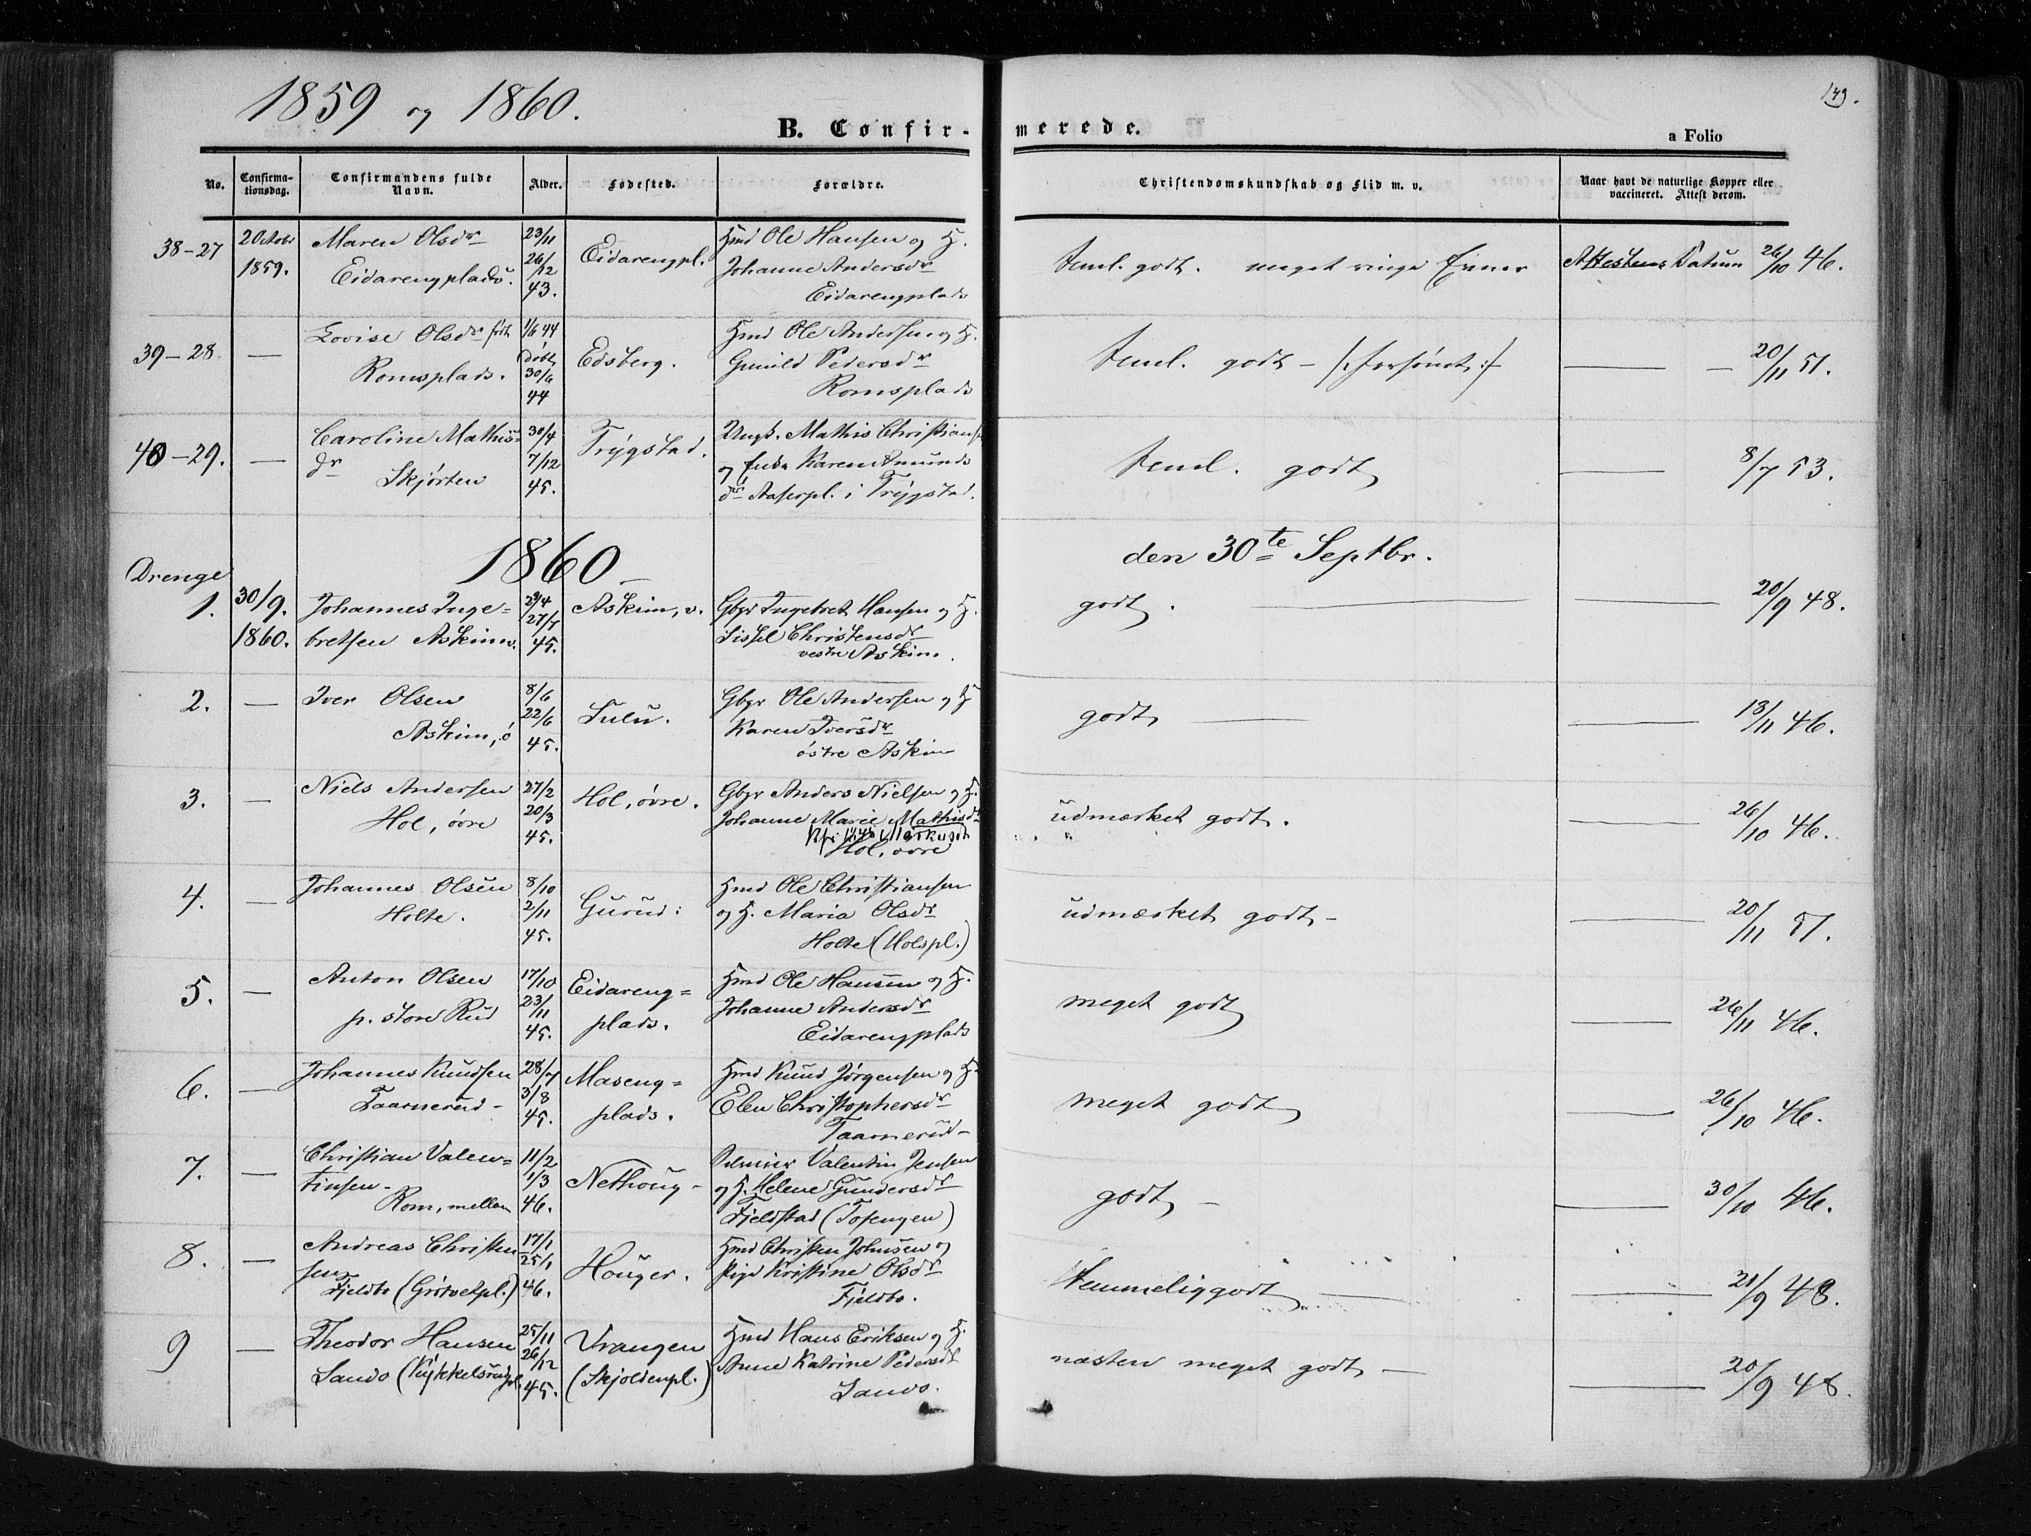 1859 og 1860.
149.
B. Confir-
merede.
a Folio
No.
Confirma-
tionsdag.
Confirmandens fulde
Navn.
Alder.
Fødested.
Forældre.
Christendomskundskab og Flid m. v.
Naar havt de naturlige Kopper eller
vaccineret. Attest derom.
38-27
2 Octobr
1859.
Maren Olsdr
Eidarengplads.
23/11
26/12
43.
Eidarengpl.
Hmd Ole Hansen og H.
Johanne Andersdr
Eidarengplads
teml. godt. meget ringe Evner
Attestens Datum 26/10 46.
39-28
—
Lovise Olsdr født
Romsplads.
1/6 44
døbt
30/6
44
Edsberg.
Hmd Ole Andersen og H.
Gunild Pedersdr
Romsplads
teml. godt - /: forsømt :/
— — 20/11 51.
40-29.
—
Caroline Mathis
dr
Skjørten
30/4
7/12
45.
Trygstad.
Ungk. Mathis Christians
og Enke Karen Amunds
dr Aaserpl. i Trygstad.
teml. godt
— 8/7 53.
1860
den 30te Septbr.
Drenge
1.
30/9.
1860.
Johannes Inge=
bretsen Askim v.
27/7
45.
Askim, v.
Gbgr Ingebret Hansen og H.
Sissel Christensdr
vestre Askim.
godt. —
— 20/9 48.
2.
—
Iver Olsen
Askim, ø
8/6
22/6
45.
Lulu.
Gbgr Ole Andersen og H
Karen Iversdr
østre Askim
godt —
— 13/11 46.
3.
—
Niels Andersen
Hol, øvre
27/2
20/3
45.
Hol, øvre.
Gbgr Anders Nielsen og H.
Johanne Marie Mathisdr
Hol, øvre
udmærket godt.
— 26/10 46.
4.
—
Johannes Olsen
Holte.
8/10
2/11
45.
Gurud:
Hmd Ole Christiansen
og H. Maria Olsdr
Holte (Holspl.)
udmærket godt -
— 20/11 51.
5.
—
Anton Olsen
p. store Rud
17/10
23/11
45.
Eidareng=
plads.
Hmd Ole Hansen og H.
Johanne Andersdr
Eidarengplads
meget godt
— 26/11 46.
6.
—
Johannes Knudsen
Taarnerud -
28/7
3/8
45.
Maseng=
plads.
Hmd Knud Jørgensen og H.
Elen Christophersdr
Taarnerud -
meget godt
— 26/10 46.
7.
—
Christian Valen=
tinsen -
Rom, mellem
11/2
1/3
46.
Nethoug -
Valentin Jensen
og H. Helene Gundersdr
Fjeldstad (Tosengen)
godt -
— 30/10 46.
8.
—
Andreas Christen
sen
Fjeldbo (Grötvetpl.)
17/1
25/1
46.
Houger.
Hmd Christen Johnsen og
Pige Kristine Olsdr
Fjeldbo.
temmelig godt —
— 21/9 48.
9
—
Theodor Hansen
Sando (Kykkelsrudpl.
25/11
26/12
45.
Vrangen
(Skjoldenpl.)
Hmd Hans Eriksen og H.
Anne Katrine Pedersdr
Sando.
næsten meget godt -
— 20/9 48.